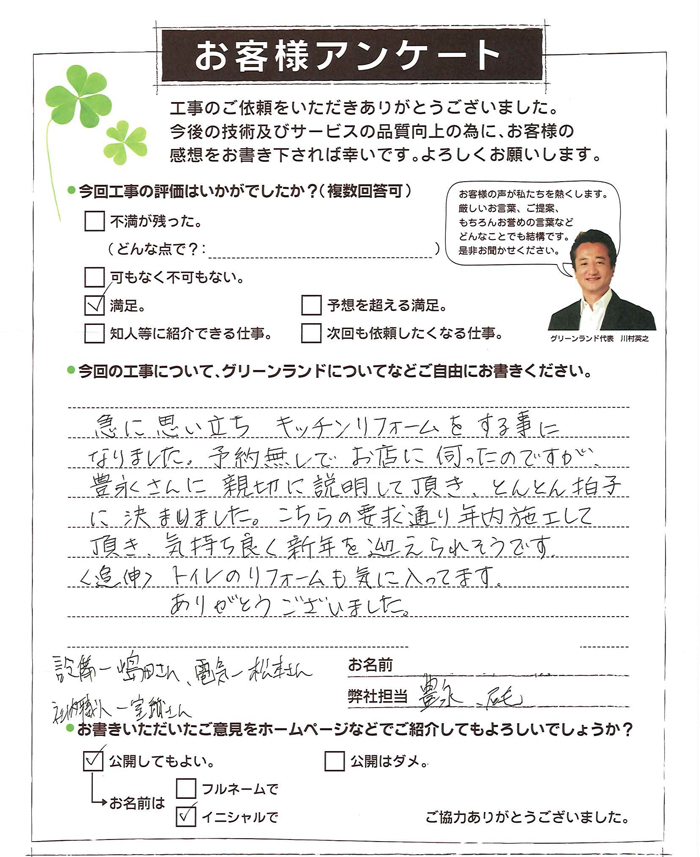 お客様アンケート
工事のご依頼をいただきありがとうございました。
今後の技術及びサービスの品質向上の為に、お客様の
感想をお書き下されば幸いです。よろしくお願いします。
今回工事の評価はいかがでしたか?(複数回答可)
不満が残った。
(どんな点で?: )
可もなく不可もない。
満足。
予想を超える満足。
知人等に紹介できる仕事。
次回も依頼したくなる仕事。
お客様の声が私たちを熱くします。
厳しいお言葉、ご提案、
もちろんお誉めの言葉など
どんなことでも結構です。
是非お聞かせください。
グリーンランド代表 川村英之
今回の工事について、グリーンランドについてなどご自由にお書きください。
急に思い立ち キッチンリフォームをする事に
なりました。予約無しで お店に伺ったのですが、
豊永さんに親切に説明して頂き、とんとん拍子
に決まりました。こちらの要求通り年内施工して
頂き、気持ち良く新年を迎えられそうです。
〈追伸〉 トイレのリフォームも気に入ってます。
ありがとうございました。
設備ー嶋田さん、電気ー松本さん
さん
お名前
弊社担当 豊永
お書きいただいたご意見をホームページなどでご紹介してもよろしいでしょうか?
公開してもよい。
公開はダメ。
お名前は
フルネームで
イニシャルで
ご協力ありがとうございました。